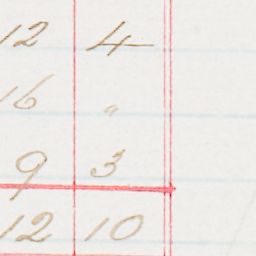 12 4
16 "
9 3
12 10